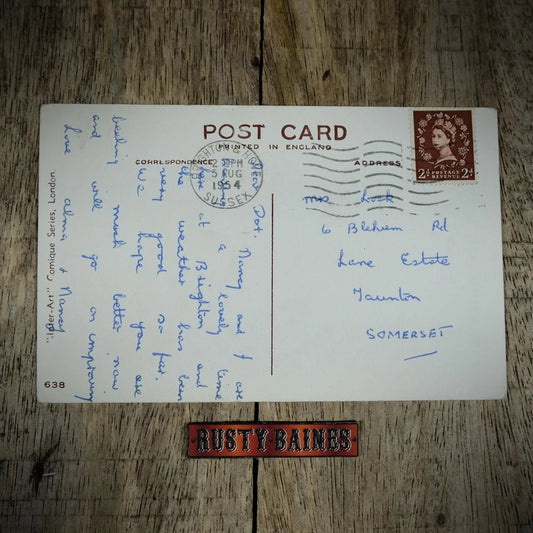 POST CARD
PRINTED IN ENGLAND
CORRESPONDENCE
ADDRESS
BRIGHTON & HOVE
2 PM
5 AUG
1954
SUSSEX
2d POSTAGE REVENUE 2d
Dear Dot. Nancy and I are
having a lovely time
at Brighton and
the weather has been
very good so far.
We hope you are
feeling much better now
and will go on improving
Love Alma & Nancy
Mrs Lock
6 Blehem Rd
Lane Estate
Taunton
SOMERSET
"Inter-Art" Comique Series, London.
638
RUSTY BAINES